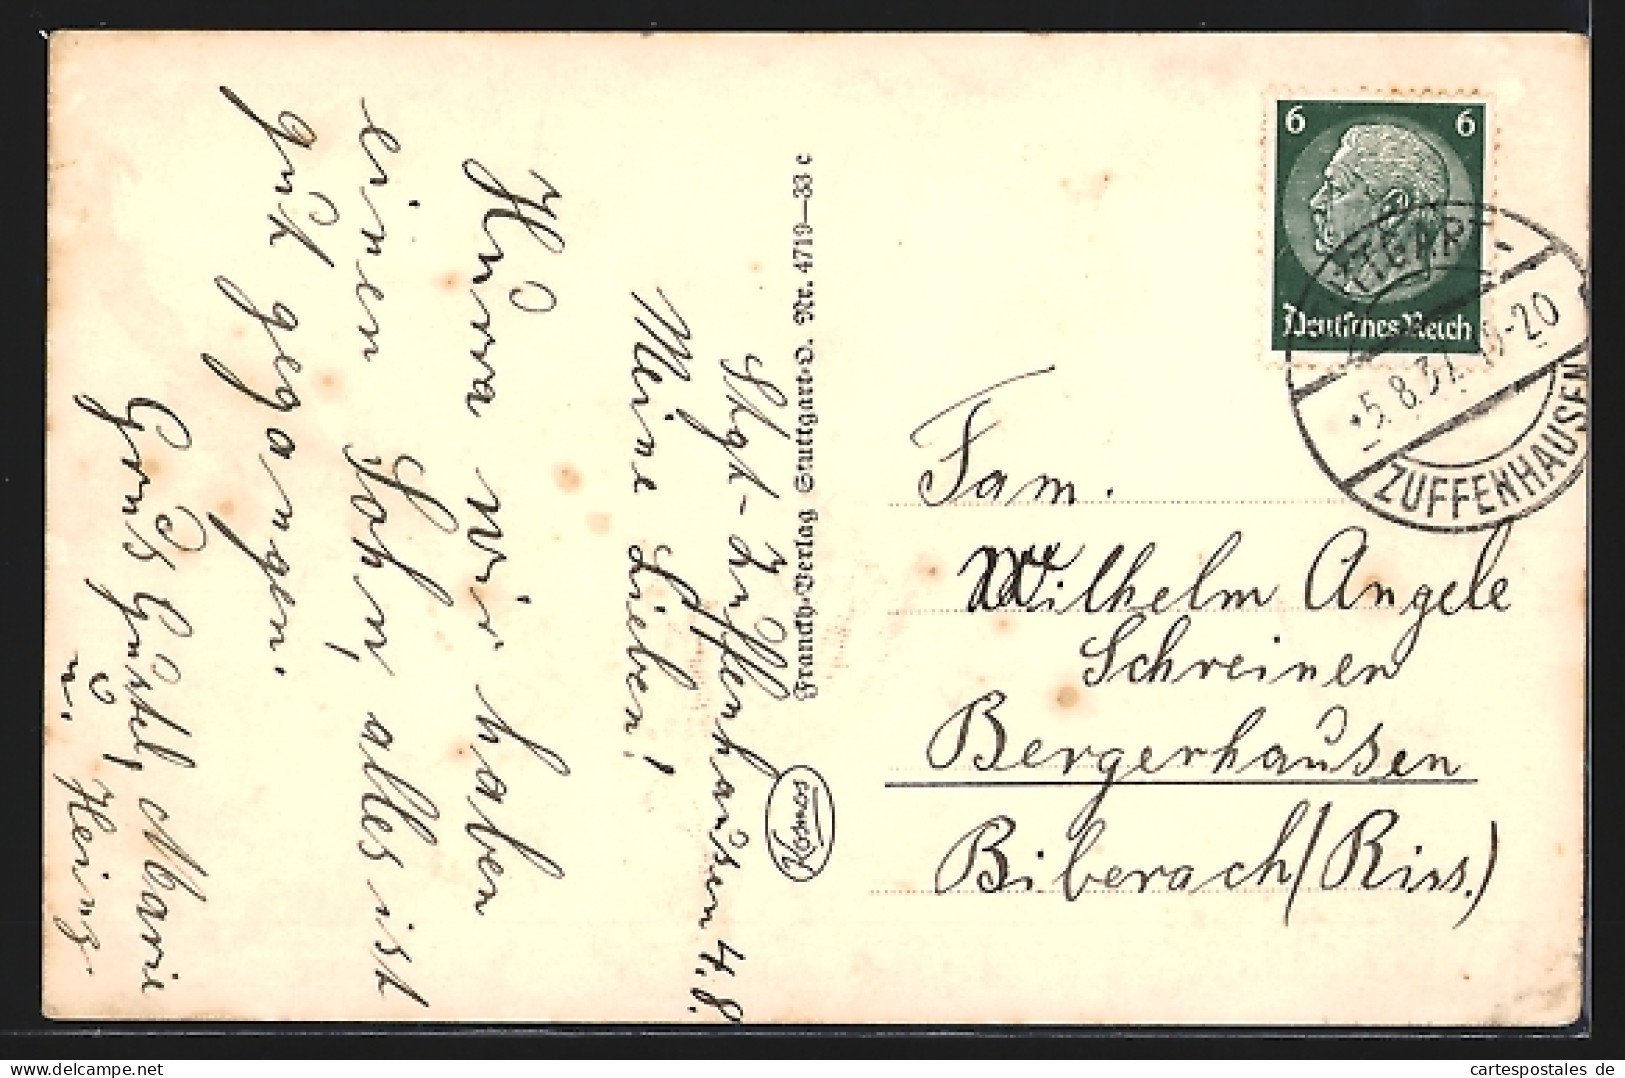 Stgt-Zuffenhausen 4.8.
Meine Lieben!
Hurra wir haben
einen Sohn, alles ist
gut gegangen.
Gruß Gustel, Marie
u. Heinz.
Franckh-Verlag Stuttgart-O. Nr. 4719—33 c
Kosmos
6 6
Deutsches Reich
STUTTGART
-5.8.37.19-20
ZUFFENHAUSEN
Fam.
Wilhelm Angele
Schreiner
Bergerhausen
Biberach/Riss.)
cartespostales de